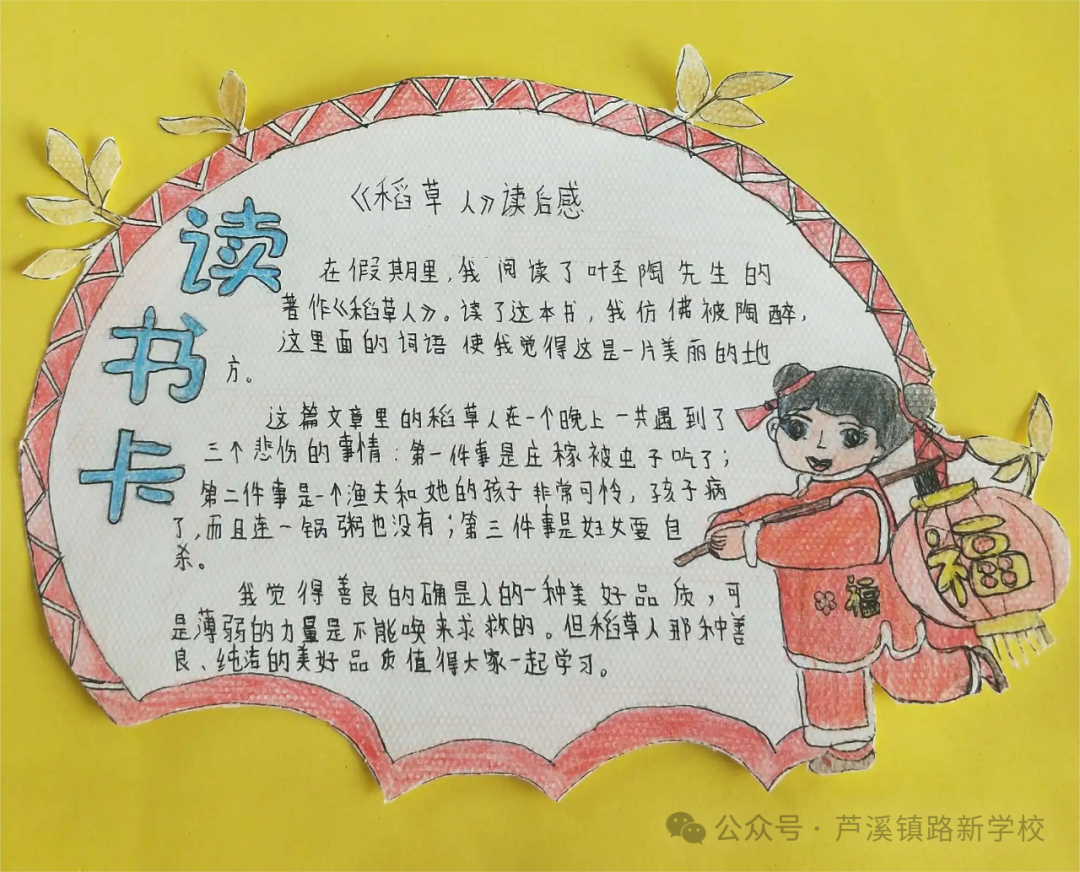 读
书
卡
《稻草人》读后感
在假期里,我阅读了叶圣陶先生的
著作《稻草人》。读了这本书,我仿佛被陶醉,
这里面的词语使我觉得这是一片美丽的地
方。
这篇文章里的稻草人在一个晚上一共遇到了
三个悲伤的事情:第一件事是庄稼被虫子吃了;
第二件事是一个渔夫和她的孩子非常可怜,孩子病
了,而且连一锅粥也没有;第三件事是妇女要自
杀。
我觉得善良的确是人的一种美好品质,可
是薄弱的力量是不能唤来求救的。但稻草人那种善
良、纯洁的美好品质值得大家一起学习。
福
福
公众号·芦溪镇路新学校